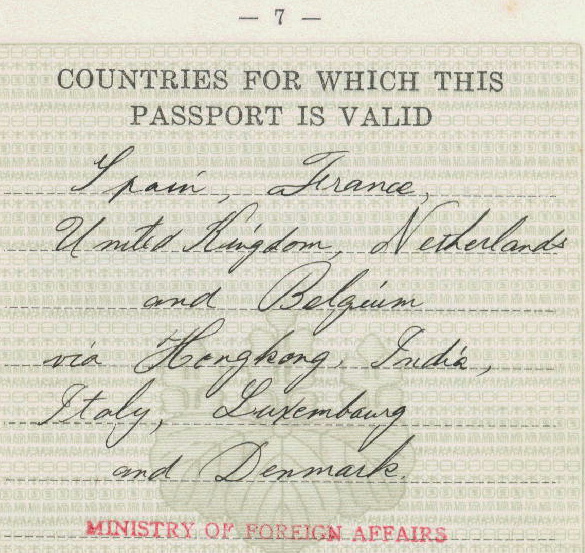 — 7 —
COUNTRIES FOR WHICH THIS
PASSPORT IS VALID
Spain, France,
United Kingdom, Netherlands
and Belgium
via Hongkong, India,
Italy, Luxembourg
and Denmark.
MINISTRY OF FOREIGN AFFAIRS